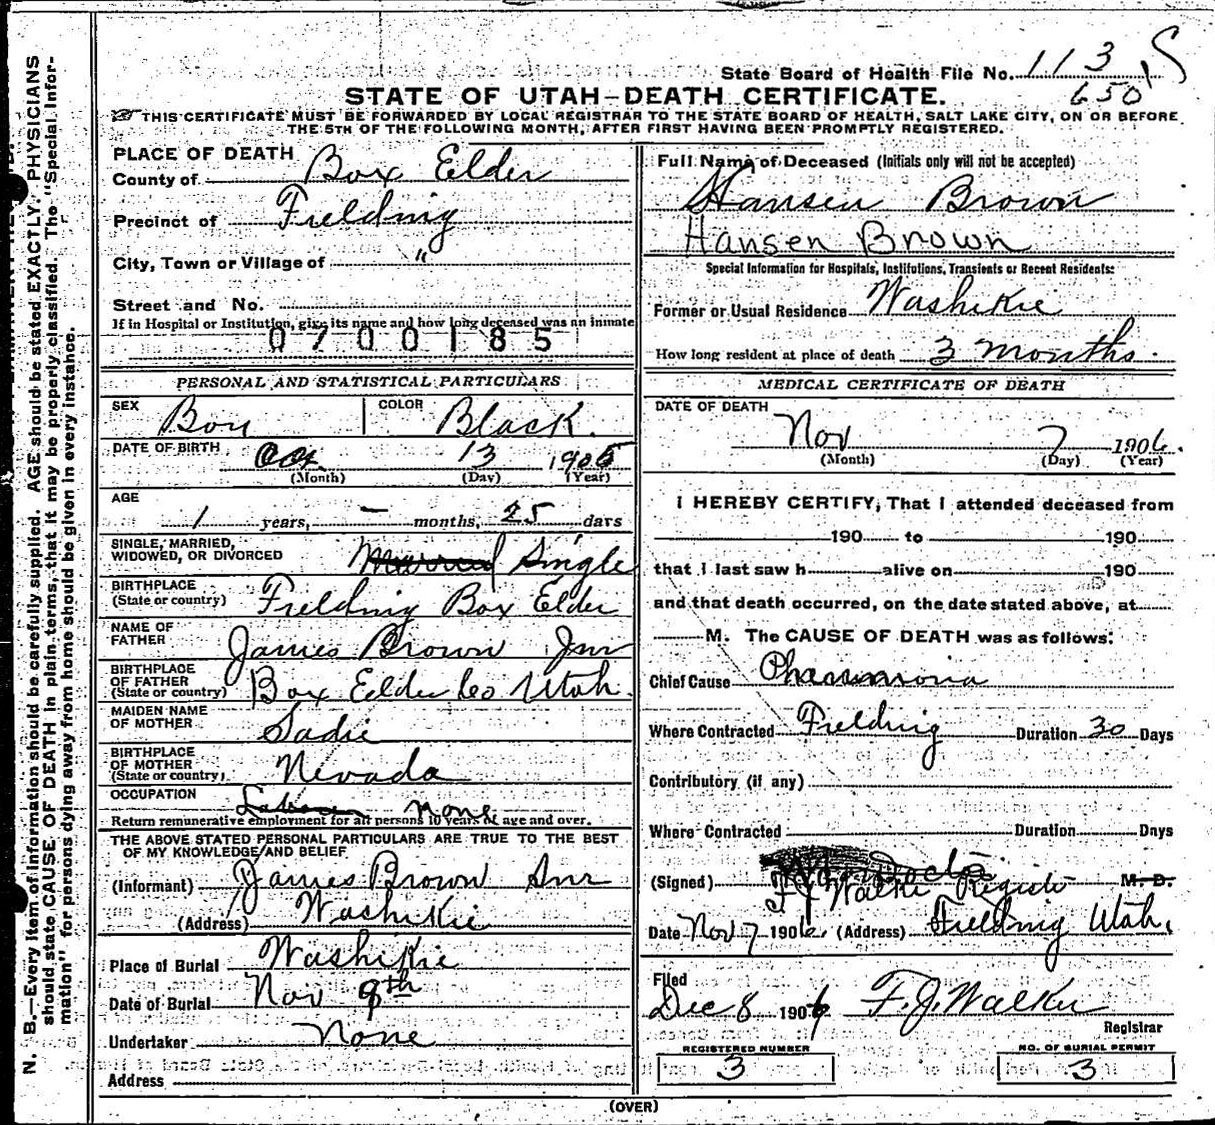 State Board of Health File No. 113
650
STATE OF UTAH—DEATH CERTIFICATE.
THIS CERTIFICATE MUST BE FORWARDED BY LOCAL REGISTRAR TO THE STATE BOARD OF HEALTH, SALT LAKE CITY, ON OR BEFORE
THE 5TH OF THE FOLLOWING MONTH, AFTER FIRST HAVING BEEN PROMPTLY REGISTERED.
N. B.—Every item of information should be carefully supplied. AGE should be stated EXACTLY. PHYSICIANS
should state CAUSE OF DEATH in plain terms, that it may be properly classified. The "Special Infor-
mation" for persons dying away from home should be given in every instance.
PLACE OF DEATH
County of Box Elder
Precinct of Fielding
City, Town or Village of "
Street and No.
If in Hospital or Institution, give its name and how long deceased was an inmate
0700185
PERSONAL AND STATISTICAL PARTICULARS
SEX Boy COLOR Black.
DATE OF BIRTH Oct 13 1905
(Month) (Day) (Year)
AGE
1 years, — months, 25 days
SINGLE, MARRIED,
WIDOWED, OR DIVORCED Married Single
BIRTHPLACE
(State or country) Fielding Box Elder
NAME OF
FATHER James Brown Jnr
BIRTHPLACE
OF FATHER
(State or country) Box Elder Co Utah.
MAIDEN NAME
OF MOTHER Sadie
BIRTHPLACE
OF MOTHER
(State or country) Nevada
OCCUPATION Laborer None
Return remunerative employment for all persons 10 years of age and over.
THE ABOVE STATED PERSONAL PARTICULARS ARE TRUE TO THE BEST
OF MY KNOWLEDGE AND BELIEF
(Informant) James Brown Snr
(Address) Washikie
Place of Burial Washikie
Date of Burial Nov 9th
Undertaker None
Address
Full Name of Deceased (Initials only will not be accepted)
Hansen Brown
Hansen Brown
Special Information for Hospitals, Institutions, Transients or Recent Residents:
Former or Usual Residence Washikie
How long resident at place of death 3 months.
MEDICAL CERTIFICATE OF DEATH
DATE OF DEATH
Nov 7 1906.
(Month) (Day) (Year)
I HEREBY CERTIFY, That I attended deceased from
190 to 190
that I last saw h alive on 190
and that death occurred, on the date stated above, at
M. The CAUSE OF DEATH was as follows:
Chief Cause
Where Contracted Fielding Duration 30 Days
Contributory (if any)
Where Contracted Duration Days
Doctor
(Signed) F J Walker Registr M. D.
Date Nov 7 1906. (Address) Fielding Utah.
Filed
Dec 8 1906 F. J. Walker
Registrar
REGISTERED NUMBER NO. OF BURIAL PERMIT
3 3
(OVER)